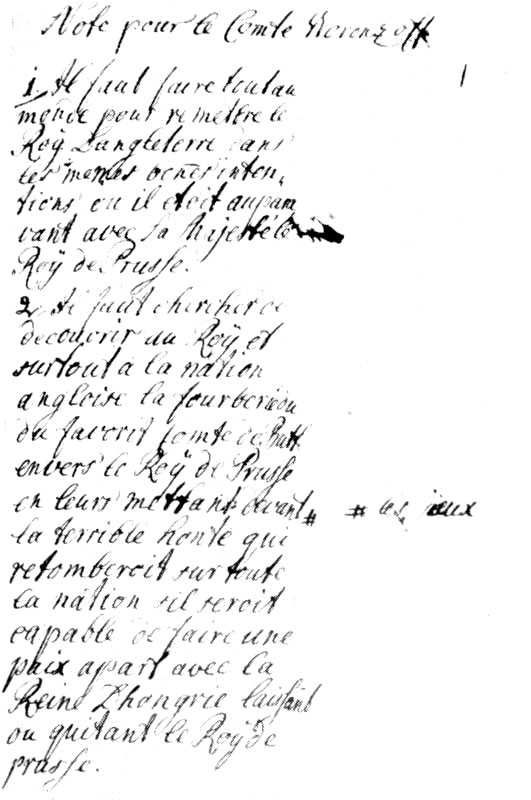 Note pour le Comte Woronzoff
1
1. Il faut faire tout au
monde pour remettre le
Roÿ Dangleterre dans
les memes bones inten,
tions ou il etoit aupara
vant avec Sa Majesté le
Roÿ de Prusse.
2. Il faut chercher de
decouvrir au Roÿ et
surtout à la nation
angloise la fourberie
du favorit Comte de Butt
envers le Roÿ de Prusse
en leurs mettant devant # # les ieux
la terrible honte qui
retomberoit sur toute
la nation sil seroit
capable de faire une
paix apart avec la
Reine Dhongrie laissant
ou quitant le Roÿ de
prusse.